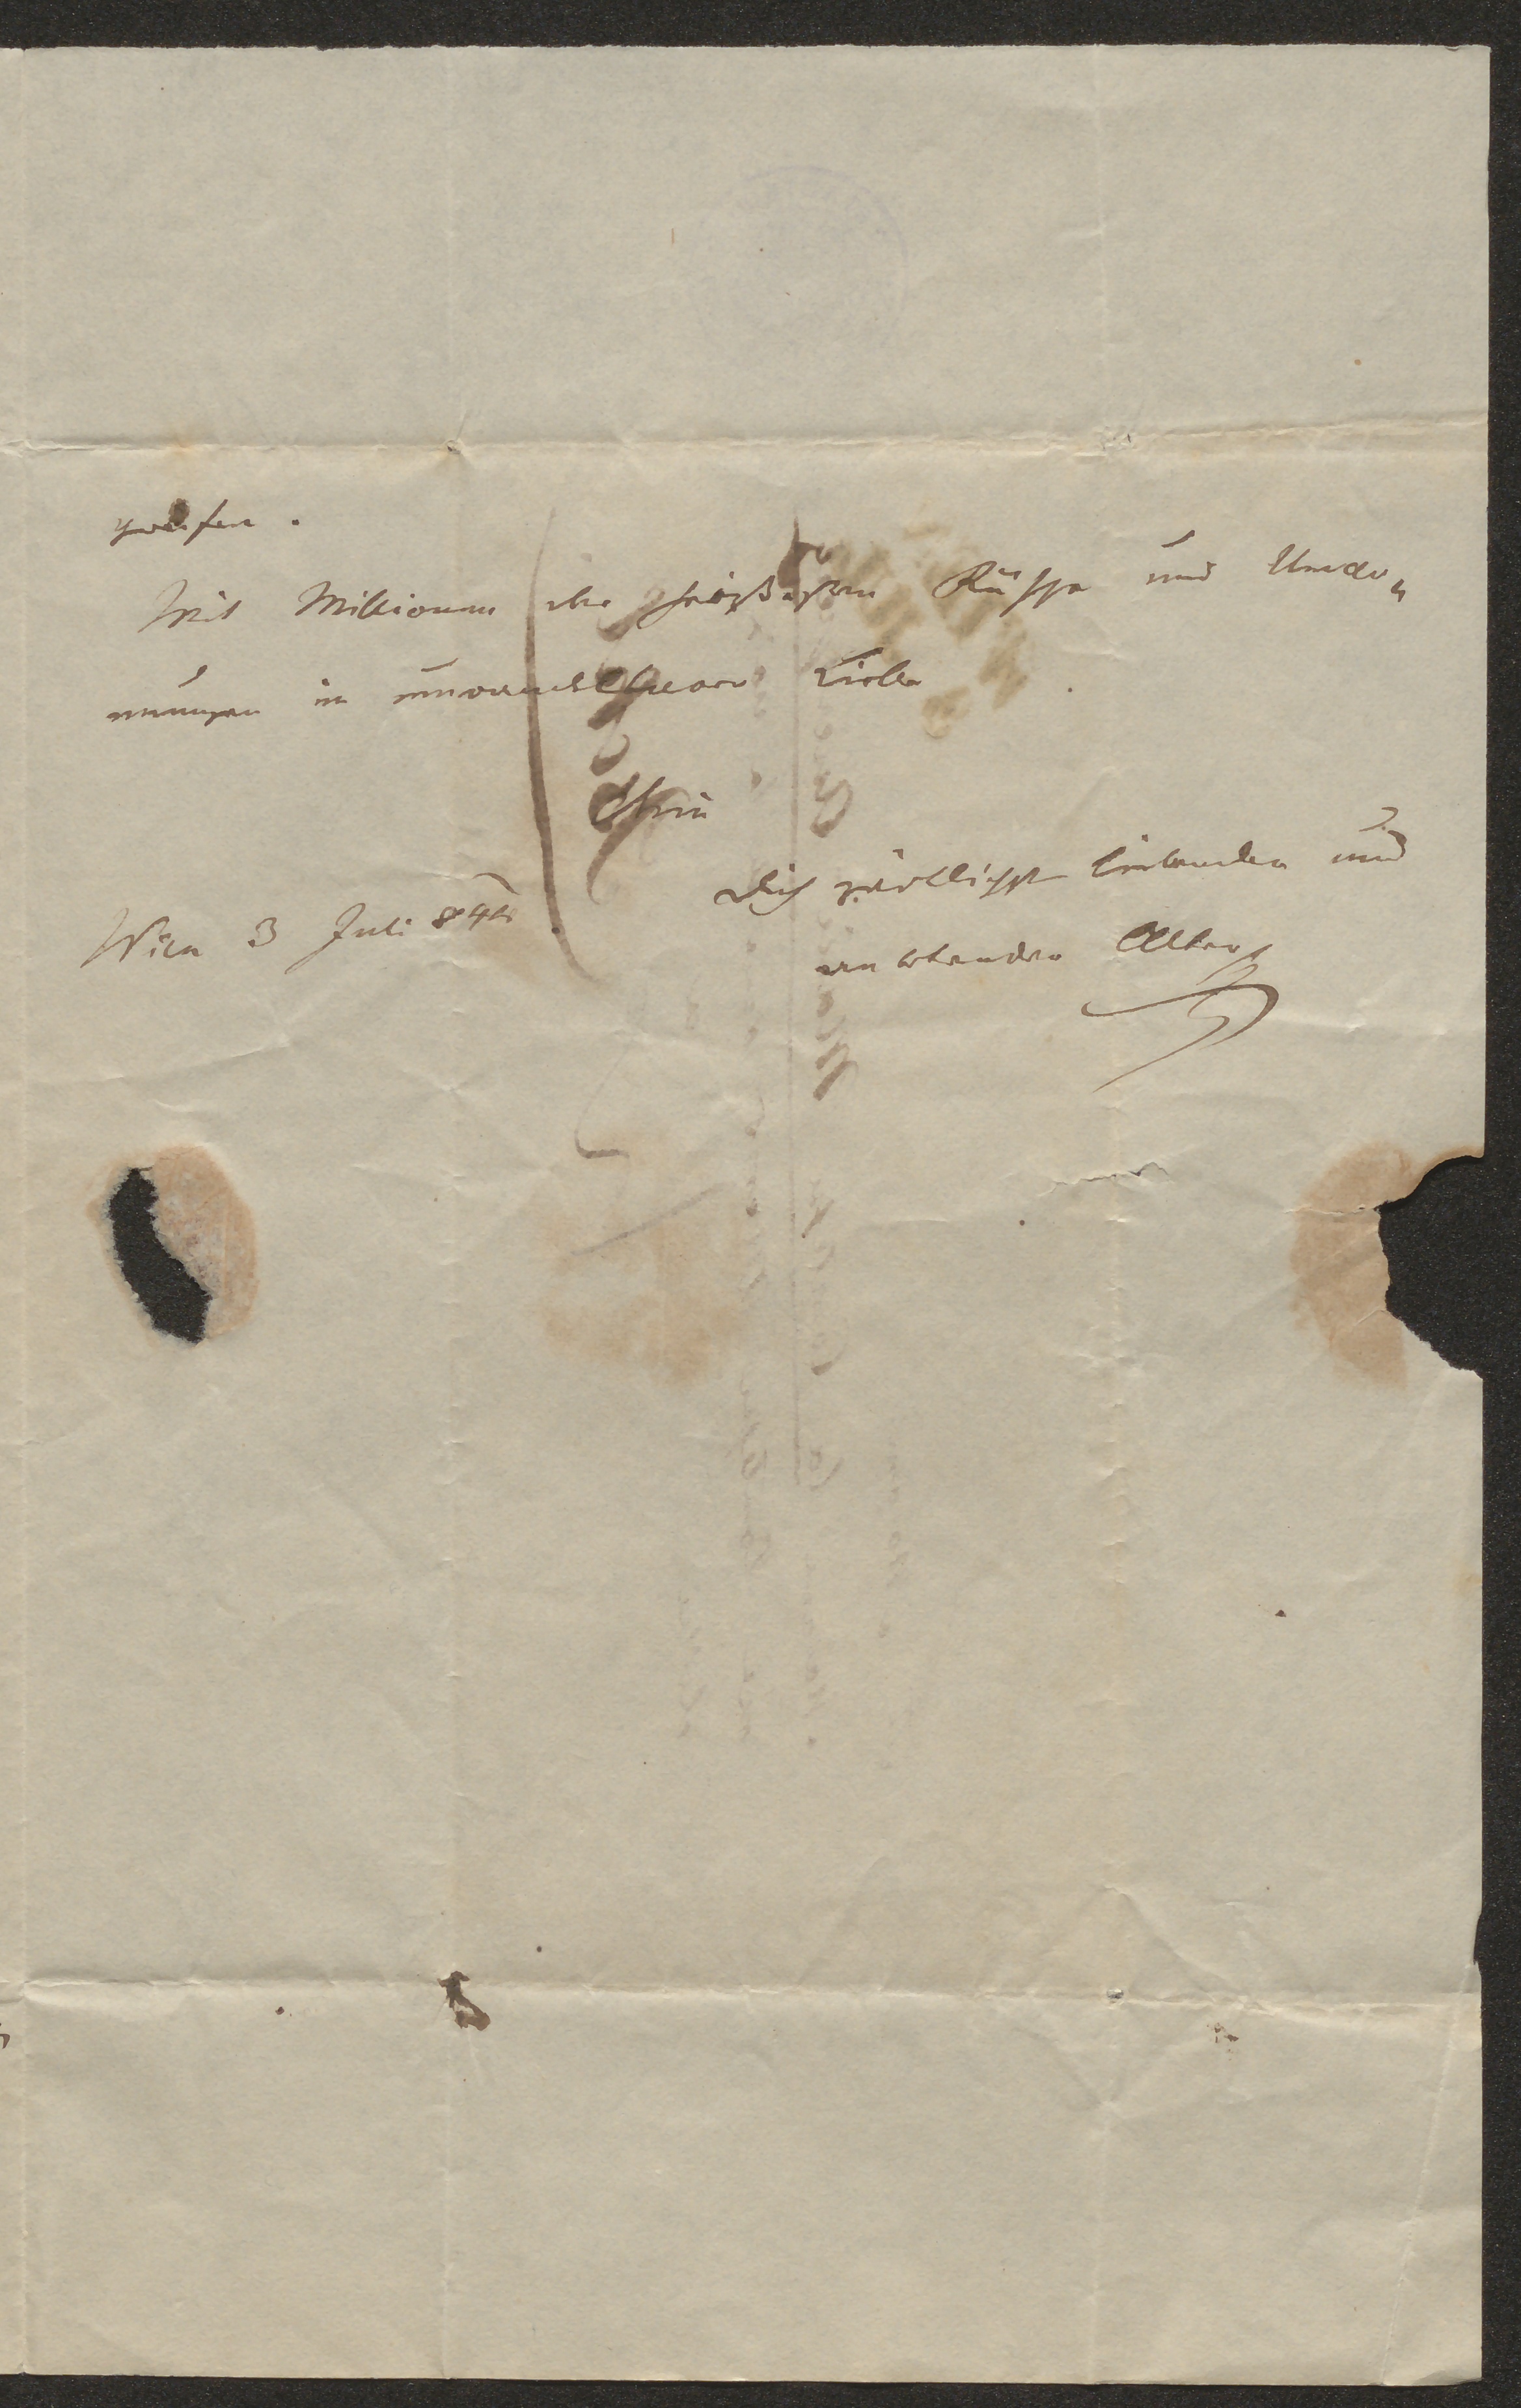 Mit Millionen der heißesten Küsse und Umar-
mungen in unwandelbarer Liebe
Dein
Dich zärtlichst liebender und
anbetender Alter
Wien 3 Juli